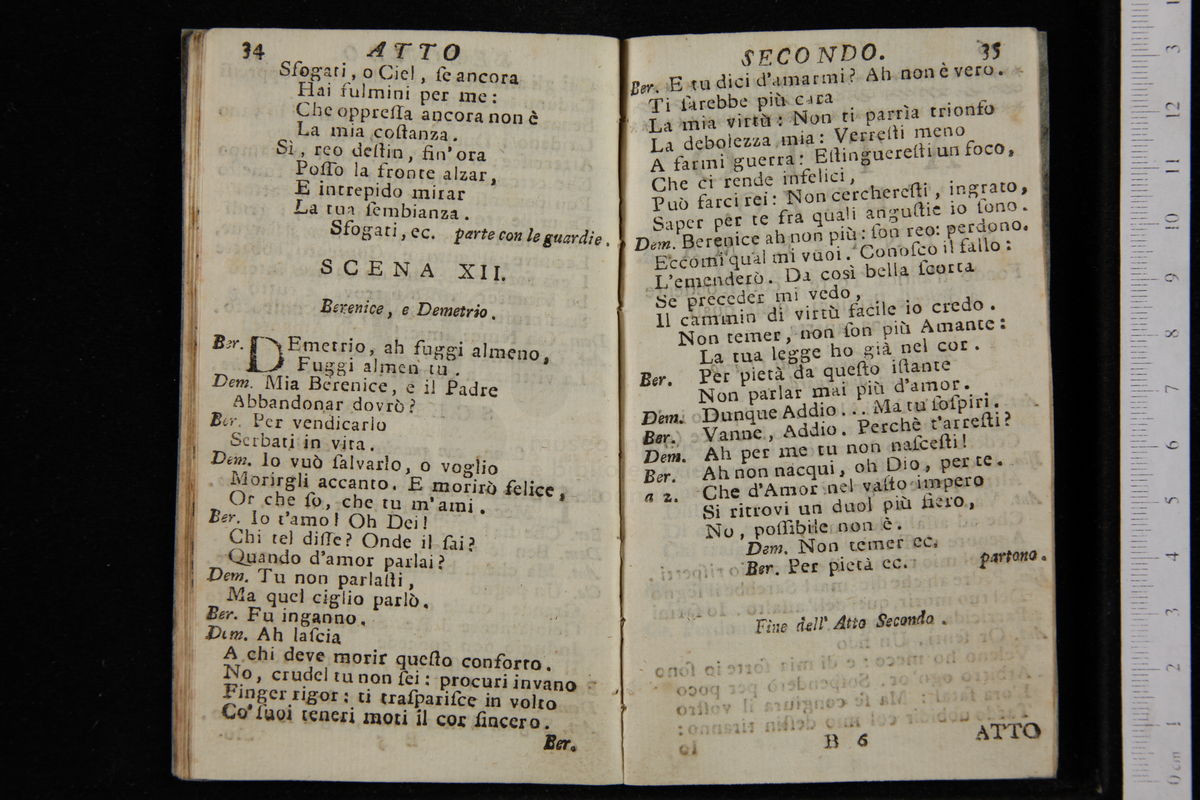 34 ATTO
Sfogati, o Ciel, ſe ancora
Hai fulmini per me:
Che oppreſſa ancora non è
La mia coſtanza.
Sì, reo deſtin, fin' ora
Poſſo la fronte alzar,
E intrepido mirar
La tua ſembianza.
Sfogati, ec. parte con le guardie.
SCENA XII.
Berenice, e Demetrio.
Ber. DEmetrio, ah fuggi almeno,
Fuggi almen tu.
Dem. Mia Berenice, e il Padre
Abbandonar dovrò?
Ber. Per vendicarlo
Serbati in vita.
Dem. Io vuò ſalvarlo, o voglio
Morirgli accanto. E morirò felice,
Or che ſo, che tu m'ami.
Ber. Io t'amo! Oh Dei!
Chi tel diſſe? Onde il ſai?
Quando d'amor parlai?
Dem. Tu non parlaſti,
Ma quel ciglio parlò.
Ber. Fu inganno.
Dem. Ah laſcia
A chi deve morir queſto conforto.
No, crudel tu non ſei: procuri invano
Finger rigor: ti traſpariſce in volto
Co' ſuoi teneri moti il cor ſincero.
Ber.
SECONDO. 35
Ber. E tu dici d'amarmi? Ah non è vero.
Ti ſarebbe più cara
La mia virtù: Non ti parrìa trionfo
La debolezza mia: Verreſti meno
A farmi guerra: Eſtinguereſti un foco,
Che ci rende infelici,
Può farci rei: Non cerchereſti, ingrato,
Saper per te fra quali anguſtie io ſono.
Dem. Berenice ah non più: ſon reo: perdono.
Eccomi qual mi vuoi. Conoſco il fallo:
L'emenderò. Da così bella ſcorta
Se preceder mi vedo,
Il cammin di virtù facile io credo.
Non temer, non ſon più Amante:
La tua legge ho già nel cor.
Ber. Per pietà da queſto iſtante
Non parlar mai più d'amor.
Dem. Dunque Addio... Ma tu ſoſpiri.
Ber. Vanne, Addio. Perchè t'arreſti?
Dem. Ah per me tu non naſceſti!
Ber. Ah non nacqui, oh Dio, per te.
a 2. Che d'Amor nel vaſto impero
Si ritrovi un duol più fiero,
No, poſſibile non è.
Dem. Non temer ec.
Ber. Per pietà ec. partono.
Fine dell' Atto Secondo.
B 6 ATTO